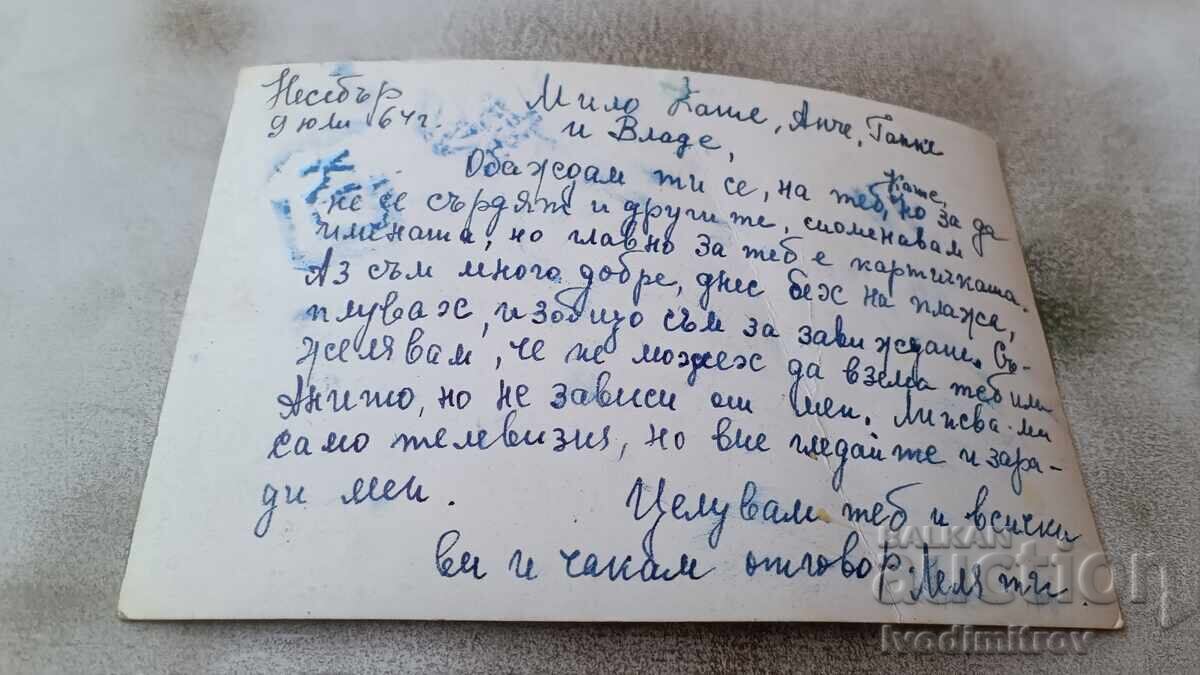 Несебър
9 юли 64 г.
Мило Кате, Анче, Ганке
и Владе,
Обаждам ти се, на теб, Кате, но за да
не се сърдят и другите, споменавам
имената, но главно за теб е картичката.
Аз съм много добре, днес бех на плажа,
плувах, изобщо съм за завиждане. Съ-
желявам, че не можех да взема теб или
Анито, но не зависи от мен. Липсва ми
само телевизия, но вие гледайте и зара-
ди мен.
Целувам теб и всички
ви и чакам отговор. Леля ти.
BALKAN
auction
ivodimitrov